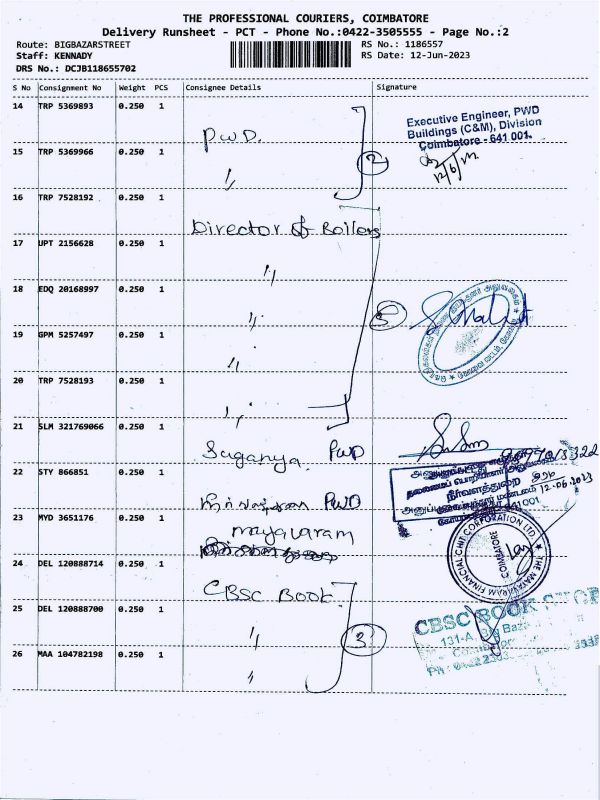 THE PROFESSIONAL COURIERS, COIMBATORE
Delivery Runsheet - PCT - Phone No.:0422-3505555 - Page No.:2
Route: BIGBAZARSTREET
RS No.: 1186557
Staff: KENNADY
RS Date: 12-Jun-2023
DRS No.: DCJB118655702
S No Consignment No Weight PCS Consignee Details Signature
14 TRP 5369893 0.250 1 PWD.
Executive Engineer, PWD
Buildings (C&M), Division
Coimbatore - 641 001.
15 TRP 5369966 0.250 1 〃
2
16 TRP 7528192 0.250 1 Director of Boilers
17 UPT 2156628 0.250 1 〃
18 EDQ 20168997 0.250 1 〃
5
19 GPM 5257497 0.250 1 〃
20 TRP 7528193 0.250 1 〃
21 SLM 321769066 0.250 1 Suganya. PWD
22 STY 866851 0.250 1 PWD
நீர்வளத்துறை
12-06-2023
641 001
23 MYD 3651176 0.250 1 mayavaram
THE MAYAVARAM FINANCIAL CHIT CORPORATION LTD
COIMBATORE
24 DEL 120888714 0.250 1 CBSC Book.
25 DEL 120888700 0.250 1 〃
3
CBSC BOOK SHOP
131-A, Big
26 MAA 104782198 0.250 1 〃